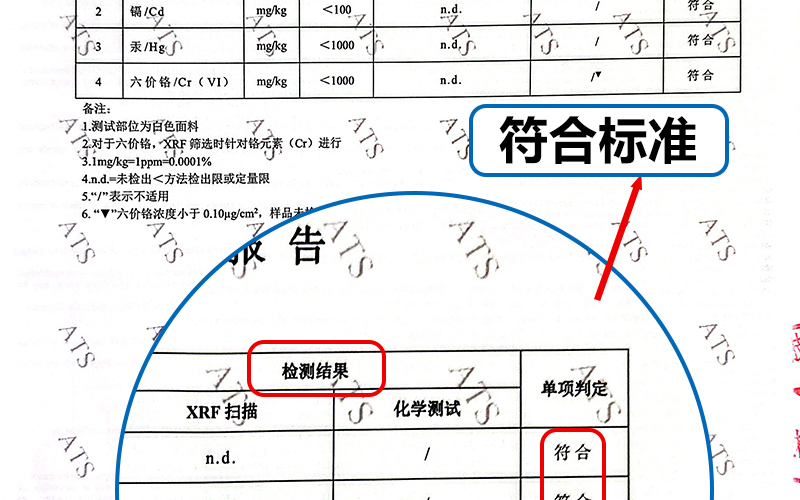 2 镉/Cd mg/kg ＜100 n.d. / 符合
3 汞/Hg mg/kg ＜1000 n.d. / 符合
4 六价铬/Cr（VI） mg/kg ＜1000 n.d. /▼ 符合
备注：
1.测试部位为白色面料
2.对于六价铬，XRF 筛选时针对铬元素（Cr）进行
3.1mg/kg=1ppm=0.0001%
4.n.d.=未检出＜方法检出限或定量限
5.“/”表示不适用
6. “▼”六价铬浓度小于 0.10μg/cm²，样品未
符合标准
报 告
检测结果 单项判定
XRF 扫描 化学测试
n.d. / 符合
/ 符合
ATS ATS ATS ATS ATS ATS
ATS ATS ATS ATS ATS
ATS ATS ATS ATS ATS
ATS ATS ATS
ATS ATS ATS ATS
ATS ATS